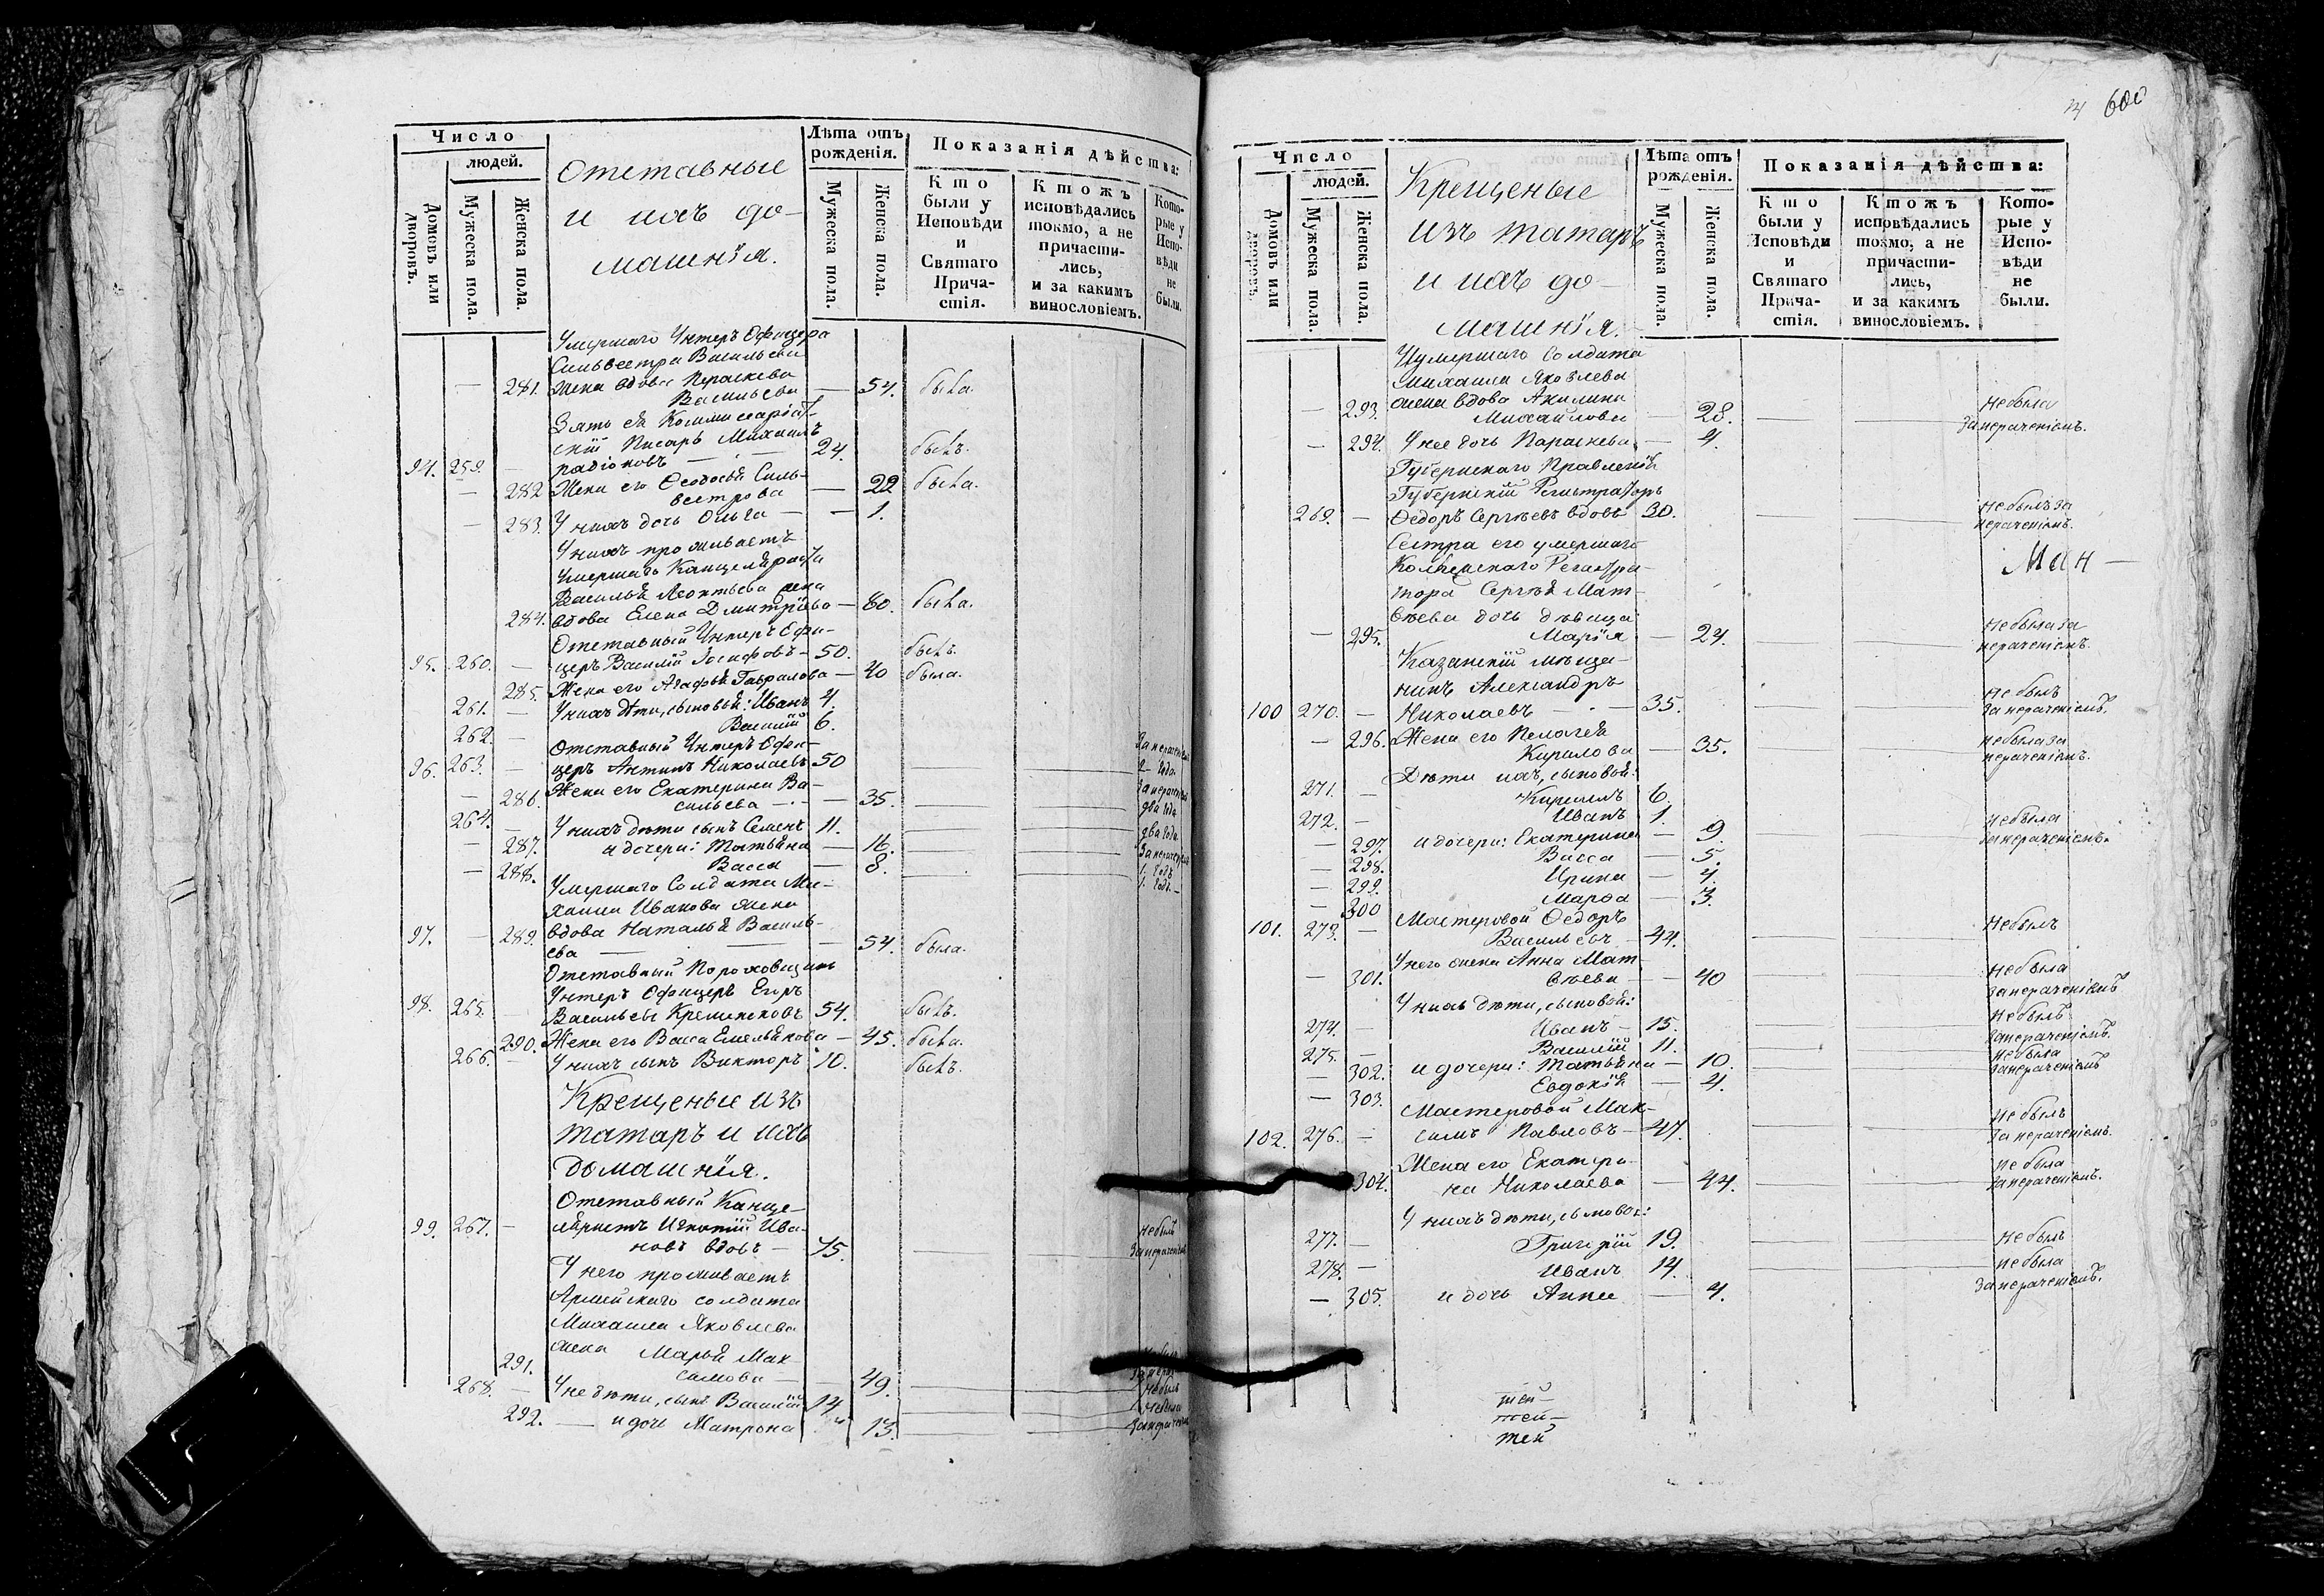 Число
людей.
Домовъ или дворовъ.
Мужеска пола.
Женска пола.
Отставные
и ихъ до-
машнія.
Лѣта отъ
рожденія.
Мужеска пола.
Женска пола.
Показанія дѣйства:
Кто были у Исповѣди и Святаго Прича-стія.
Ктожъ исповѣдались токмо, а не причасти-лись, и за какимъ винословіемъ.
Кото-рые у Испо-вѣди не были.
Умершаго Унтеръ Офицера
Сильвестра Васильева
— 281. жена вдова Параскева
Васильева — 54. была.
Зять ея Коммисаріат-
скій Писарь Михаилъ
94. 259. — Радіоновъ — 24. былъ.
— 282 Жена его Ѳеодосья Силь-
вестрова — 22 была.
— 283. У нихъ дочь Ольга — 1.
У нихъ проживаетъ
умершаго Канцеляриста
Василья Леонтьева жена
284. вдова Елена Дмитріева — 80. была.
Отставный Унтеръ Офи-
95. 260. — церъ Василій Іосифовъ — 50. былъ.
285. Жена его Агафья Гаврилова — 40 была.
261. — У нихъ дѣти, сыновья: Иванъ 4.
262. — Василій 6.
Отставный Унтеръ Офи-
96. 263. — церъ Антипъ Николаевъ 50
— 286. Жена его Екатерина Ва-
сильева — 35.
264. — У нихъ дѣти сынъ Семенъ 11.
— 287. и дочери: Татьяна — 16.
— 288. Васса — 8.
Умершаго Солдата Ми-
хаила Иванова жена
97. — 289. вдова Наталья Василь-
ева — 54. была.
Отставный Пороховщикъ
Унтеръ Офицеръ Егоръ
98. 265. — Васильевъ 54. былъ.
290. Жена его Васса Емельянова — 45. была.
266. — У нихъ сынъ Викторъ 10. былъ.
Крещеные изъ
татаръ и ихъ
домашнія.
Отставный Канце-
99. 267. — ляристъ Игнатій Ива-
новъ вдовъ — 75. небылъ
У него проживаетъ
Армейскаго солдата
Михаила Яковлева
291. жена Марья Мак-
симова — 49.
268. — У ней дѣти, сынъ Василій 14
292. — и дочь Матрона 13.
600
Число
людей.
Домовъ или дворовъ.
Мужеска пола.
Женска пола.
Крещеные
изъ татаръ
и ихъ до-
машнія.
Лѣта отъ
рожденія.
Мужеска пола.
Женска пола.
Показанія дѣйства:
Кто были у Исповѣди и Святаго Прича-стія.
Ктожъ исповѣдались токмо, а не причасти-лись, и за какимъ винословіемъ.
Кото-рые у Испо-вѣди не были.
умершаго Солдата
Михаила Яковлева
— 293. жена вдова Акилина
Михайлова — 28. Небыла за нераченіемъ.
— 294. У нее дочь Параскева — 4.
Губернскаго Правленія
Губернскій Регистраторъ
269. — Ѳедоръ Сергѣевъ вдовъ 30. Небылъ за нераченіемъ.
Сестра его умершаго
Колежскаго Регистра-
тора Сергѣя Мат-
вѣева дочь дѣвица
— 295. Марія — 24. Небыла за нераченіемъ.
Казанскій мѣща-
нинъ Александръ
100 270. — Николаевъ — 35. Небылъ за нераченіемъ.
— 296. Жена его Пелагея
Кирилова — 35. Небыла за нераченіемъ.
Дѣти ихъ, сыновья:
271. — Кириллъ 6.
272. — Иванъ 1.
— 297. и дочери: Екатерина — 9. Небыла за нераченіемъ.
— 298. Васса — 5.
— 299. Ирина — 4.
— 300 Марѳа — 3.
101. 273. — Мастеровой Ѳедоръ
Васильевъ — 44. Небылъ
У него жена Анна Мат-
— 301. вѣева — 40 Небыла за нераченіемъ
У нихъ дѣти, сыновья:
274. — Иванъ — 15. Небылъ за нераченіемъ.
275. — Василій 11.
— 302. и дочери: Татьяна — 10. Небыла за нераченіемъ
— 303. Евдокія — 4.
Мастеровой Мак-
102. 276. — симъ Павловъ — 47. Небылъ за нераченіемъ.
Жена его Екатери-
304. на Николаева — 44. Небыла за нераченіемъ.
У нихъ дѣти, сыновья:
277. — Григорій 19. Небылъ
278. — Иванъ 14. Небыла
— 305. и дочь Анна — 4. за нераченіемъ.
тей—
тей—
тей